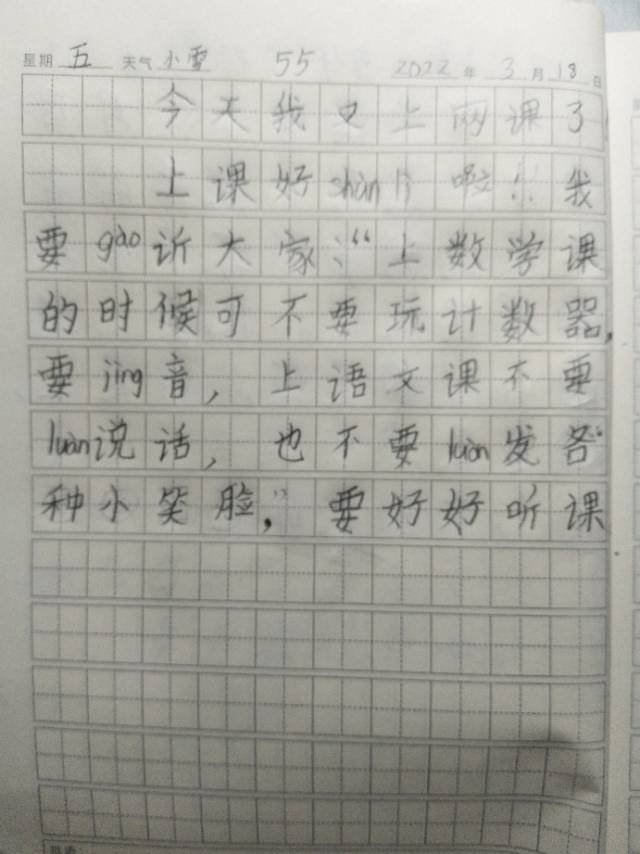 星期 五 天气 小雪 55 2022 年 3 月 18 日
今天我又上网课了!
上课好shùn lì 啦!我
要gào诉大家:“上数学课
的时候可不要玩计数器,
要jìng音,上语文课不要
luàn说话,也不要luàn发各
种小笑脸,”要好好听课